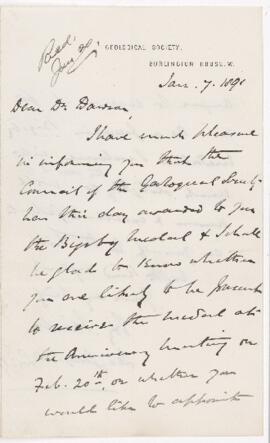 Recd.
Jan 20
GEOLOGICAL SOCIETY,
BURLINGTON HOUSE, W.
Jan. 7. 1891
Dear Dr. Dawson,
I have much pleasure
in informing you that the
Council of the Geological Society
has this day awarded to you
the Bigsby Medal & I shall
be glad to know whether
you are likely to be present
to receive the medal at
the Anniversary meeting on
Feb. 20th, or whether you
would like to appoint